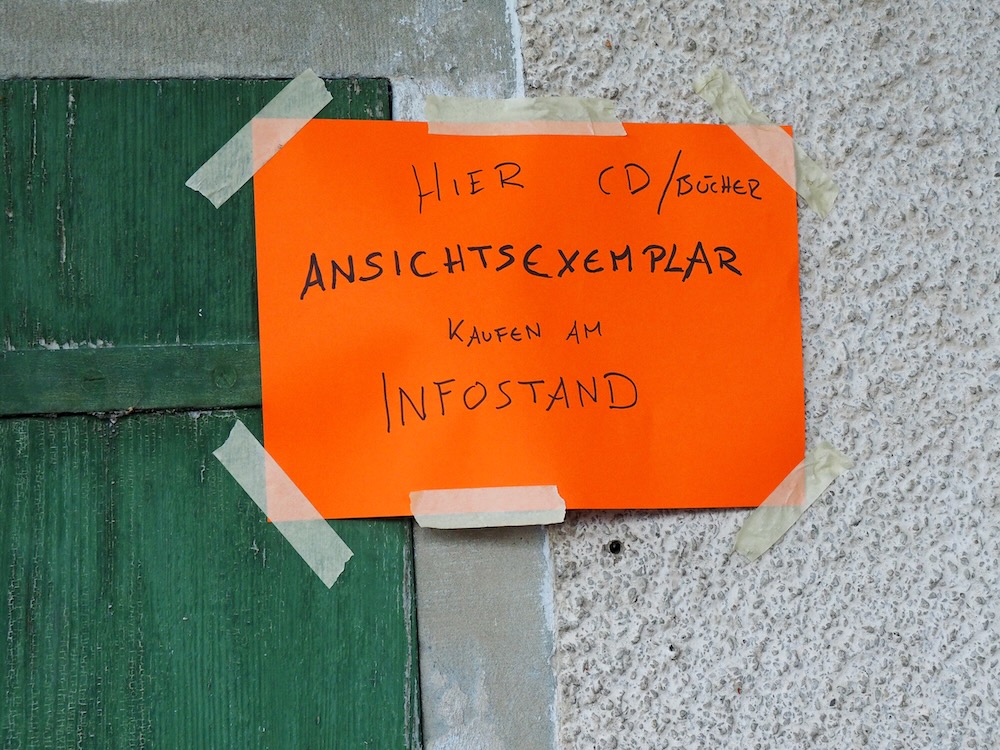 HIER CD/BÜCHER
ANSICHTSEXEMPLAR
KAUFEN AM
INFOSTAND